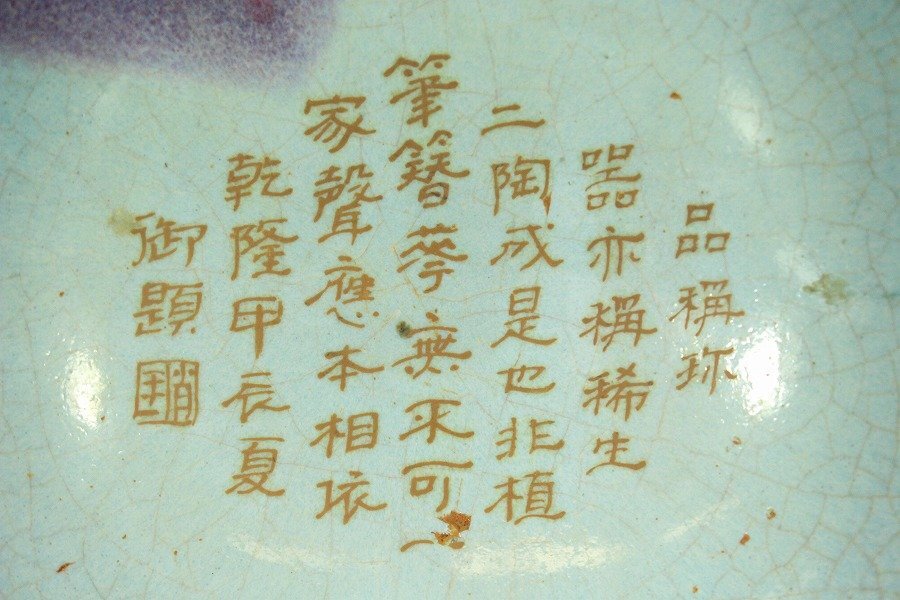 品稱珎
器亦稱稀生
二陶成是也非植
筆簪華無不可一
家聲應本相依
乾隆甲辰夏
御題